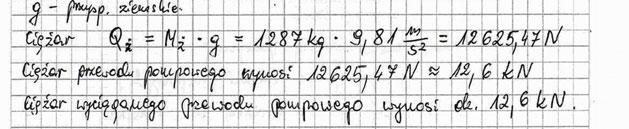 g - przysp. ziemskie.
Ciężar Qż = Mż · g = 1287 kg · 9,81 m/s² = 12625,47 N
Ciężar przewodu pompowego wynosi 12625,47 N ≈ 12,6 kN
Ciężar wyciąganego przewodu pompowego wynosi ok. 12,6 kN.